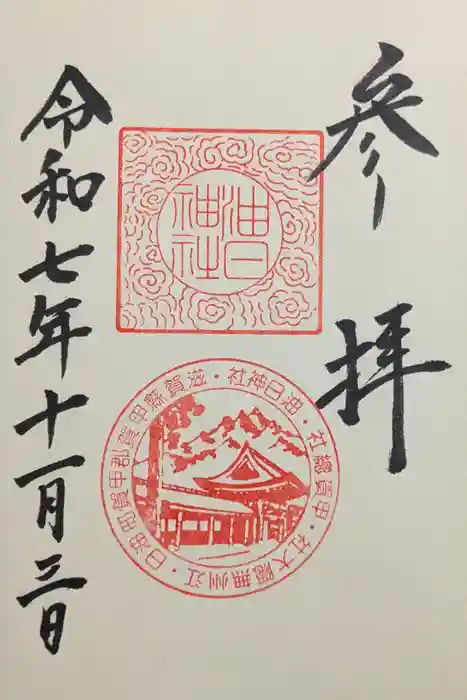 参拝
油日
神社
油日神社・滋賀縣甲賀郡甲賀町油日・江州無隠大社・甲賀總社・
令和七年十一月三日